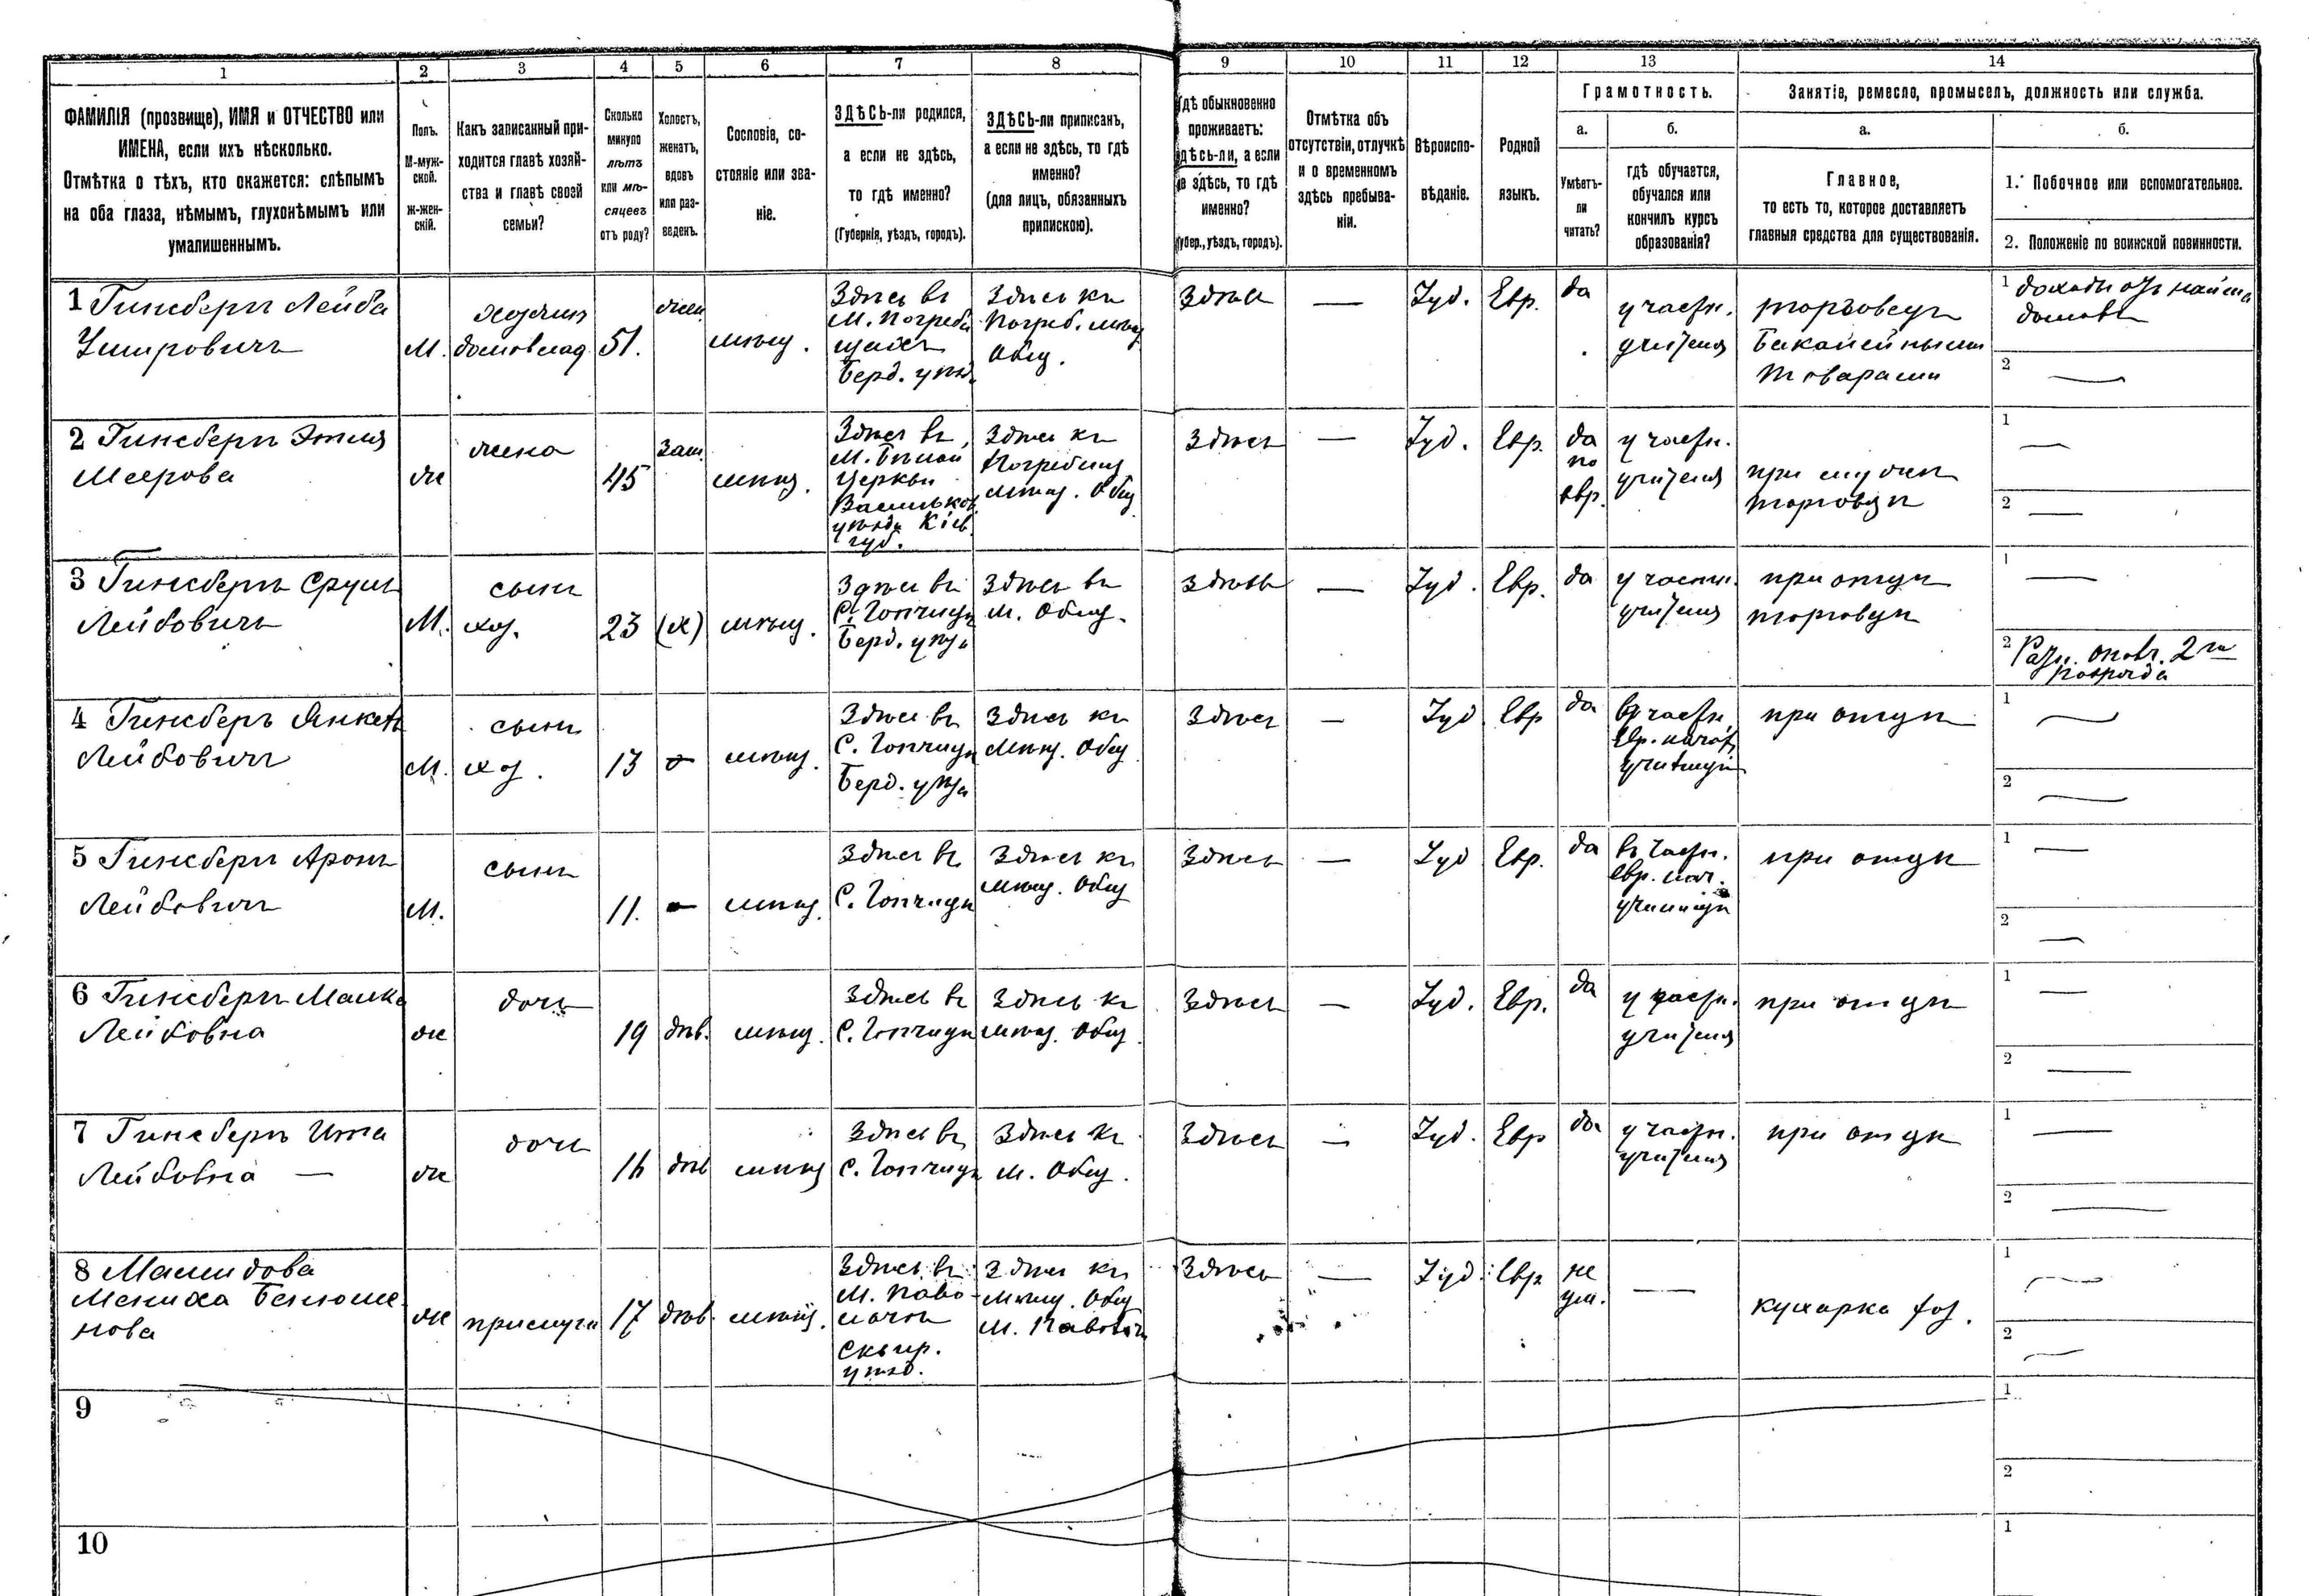 1 2 3 4 5 6 7 8 9 10 11 12 13 14
ФАМИЛІЯ (прозвище), ИМЯ и ОТЧЕСТВО или
ИМЕНА, если ихъ нѣсколько.
Отмѣтка о тѣхъ, кто окажется: слѣпымъ
на оба глаза, нѣмымъ, глухонѣмымъ или
умалишеннымъ.
Полъ.
М-муж-
ской.
Ж-жен-
скій.
Какъ записанный при-
ходится главѣ хозяй-
ства и главѣ своей
семьи?
Сколько
минуло
лѣтъ
или мѣ-
сяцевъ
отъ роду?
Холостъ,
женатъ,
вдовъ
или раз-
веденъ.
Сословіе, со-
стояніе или зва-
ніе.
ЗДѢСЬ-ли родился,
а если не здѣсь,
то гдѣ именно?
(Губернія, уѣздъ, городъ).
ЗДѢСЬ-ли приписанъ,
а если не здѣсь, то гдѣ
именно?
(для лицъ, обязанныхъ
припискою).
гдѣ обыкновенно
проживаетъ:
здѣсь-ли, а если
не здѣсь, то гдѣ
именно?
(Губер., уѣздъ, городъ).
Отмѣтка объ
отсутствіи, отлучкѣ
и о временномъ
здѣсь пребыва-
ніи.
Вѣроиспо-
вѣданіе.
Родной
языкъ.
Грамотность.
а.
Умѣетъ-
ли
читать?
б.
гдѣ обучается,
обучался или
кончилъ курсъ
образованія?
Занятіе, ремесло, промыселъ, должность или служба.
а.
Главное,
то есть то, которое доставляетъ
главныя средства для существованія.
б.
1. Побочное или вспомогательное.
2. Положеніе по воинской повинности.
1 Гинсбергъ Лейба
М.
хозяинъ
домовлад.
51.
жен.
мѣщ.
Здѣсь въ
М. Погреби
щахъ
Берд. уѣзд.
Здѣсь къ
Погреб. мѣщ
Общ.
Здѣсь
—
Іуд.
Евр.
да
у частн.
учителя
торговецъ
Бакалейными
товарами
1 доходы отъ найма
домовъ
2 —
2 Гинсбергъ Этля
Меерова
ж
жена
45
зам.
мѣщ.
Здѣсь въ
М. Бѣлой
Церкви
Васильков.
уѣзда Кіев.
губ.
Здѣсь къ
Погребищ
мѣщ. Общ
Здѣсь
—
Іуд.
Евр.
да
по
евр.
у частн.
учителя
при мужѣ
торговцѣ
1 —
2 —
3 Гинсбергъ Сруль
Лейбовичъ
М.
сынъ
хоз.
23
(х)
мѣщ.
Здѣсь въ
С. Гопчицѣ
Берд. уѣзда
Здѣсь въ
м. Общ.
Здѣсь
—
Іуд.
Евр.
да
у частн.
учителя
при отцѣ
торговцѣ
1 —
2 Ратн. опол. 2 го
разряда
4 Гинсбергъ Янкель
Лейбовичъ
М.
сынъ
хоз.
13
мѣщ.
Здѣсь въ
С. Гопчицѣ
Берд. уѣзда
Здѣсь къ
Мѣщ. Общ
Здѣсь
—
Іуд
Евр
да
въ частн.
Евр. нач.
училищѣ
при отцѣ
1 —
2 —
5 Гинсбергъ Аронъ
Лейбовичъ
М.
сынъ
11.
—
мѣщ.
Здѣсь въ
С. Гопчицѣ
Здѣсь къ
мѣщ. Общ
Здѣсь
—
Іуд
Евр.
да
въ частн.
евр. нач.
училищѣ
при отцѣ
1 —
2 —
6 Гинсбергъ Малка
Лейбовна
ж
дочь
19
дѣв.
мѣщ.
Здѣсь въ
С. Гопчицѣ
Здѣсь къ
мѣщ. Общ.
Здѣсь
—
Іуд.
Евр.
да
у частн.
учителя
при отцѣ
1 —
2 —
7 Гинсбергъ Ита
Лейбовна —
ж
дочь
16
дѣв
мѣщ
Здѣсь въ
С. Гопчицѣ
Здѣсь къ
м. Общ.
Здѣсь
—
Іуд.
Евр
да
у частн.
учителя
при отцѣ
1 —
2 —
8
Мениха
нова
ж
прислуга
17
дѣв.
мѣщ.
Здѣсь въ
М. Паво
лочи
Сквир.
уѣзд.
Здѣсь къ
Мѣщ. Общ
М. Паволочи
Здѣсь
—
Іуд.
Евр
не
ум.
—
кухарка хоз.
1 —
2 —
9
1
2
10
1